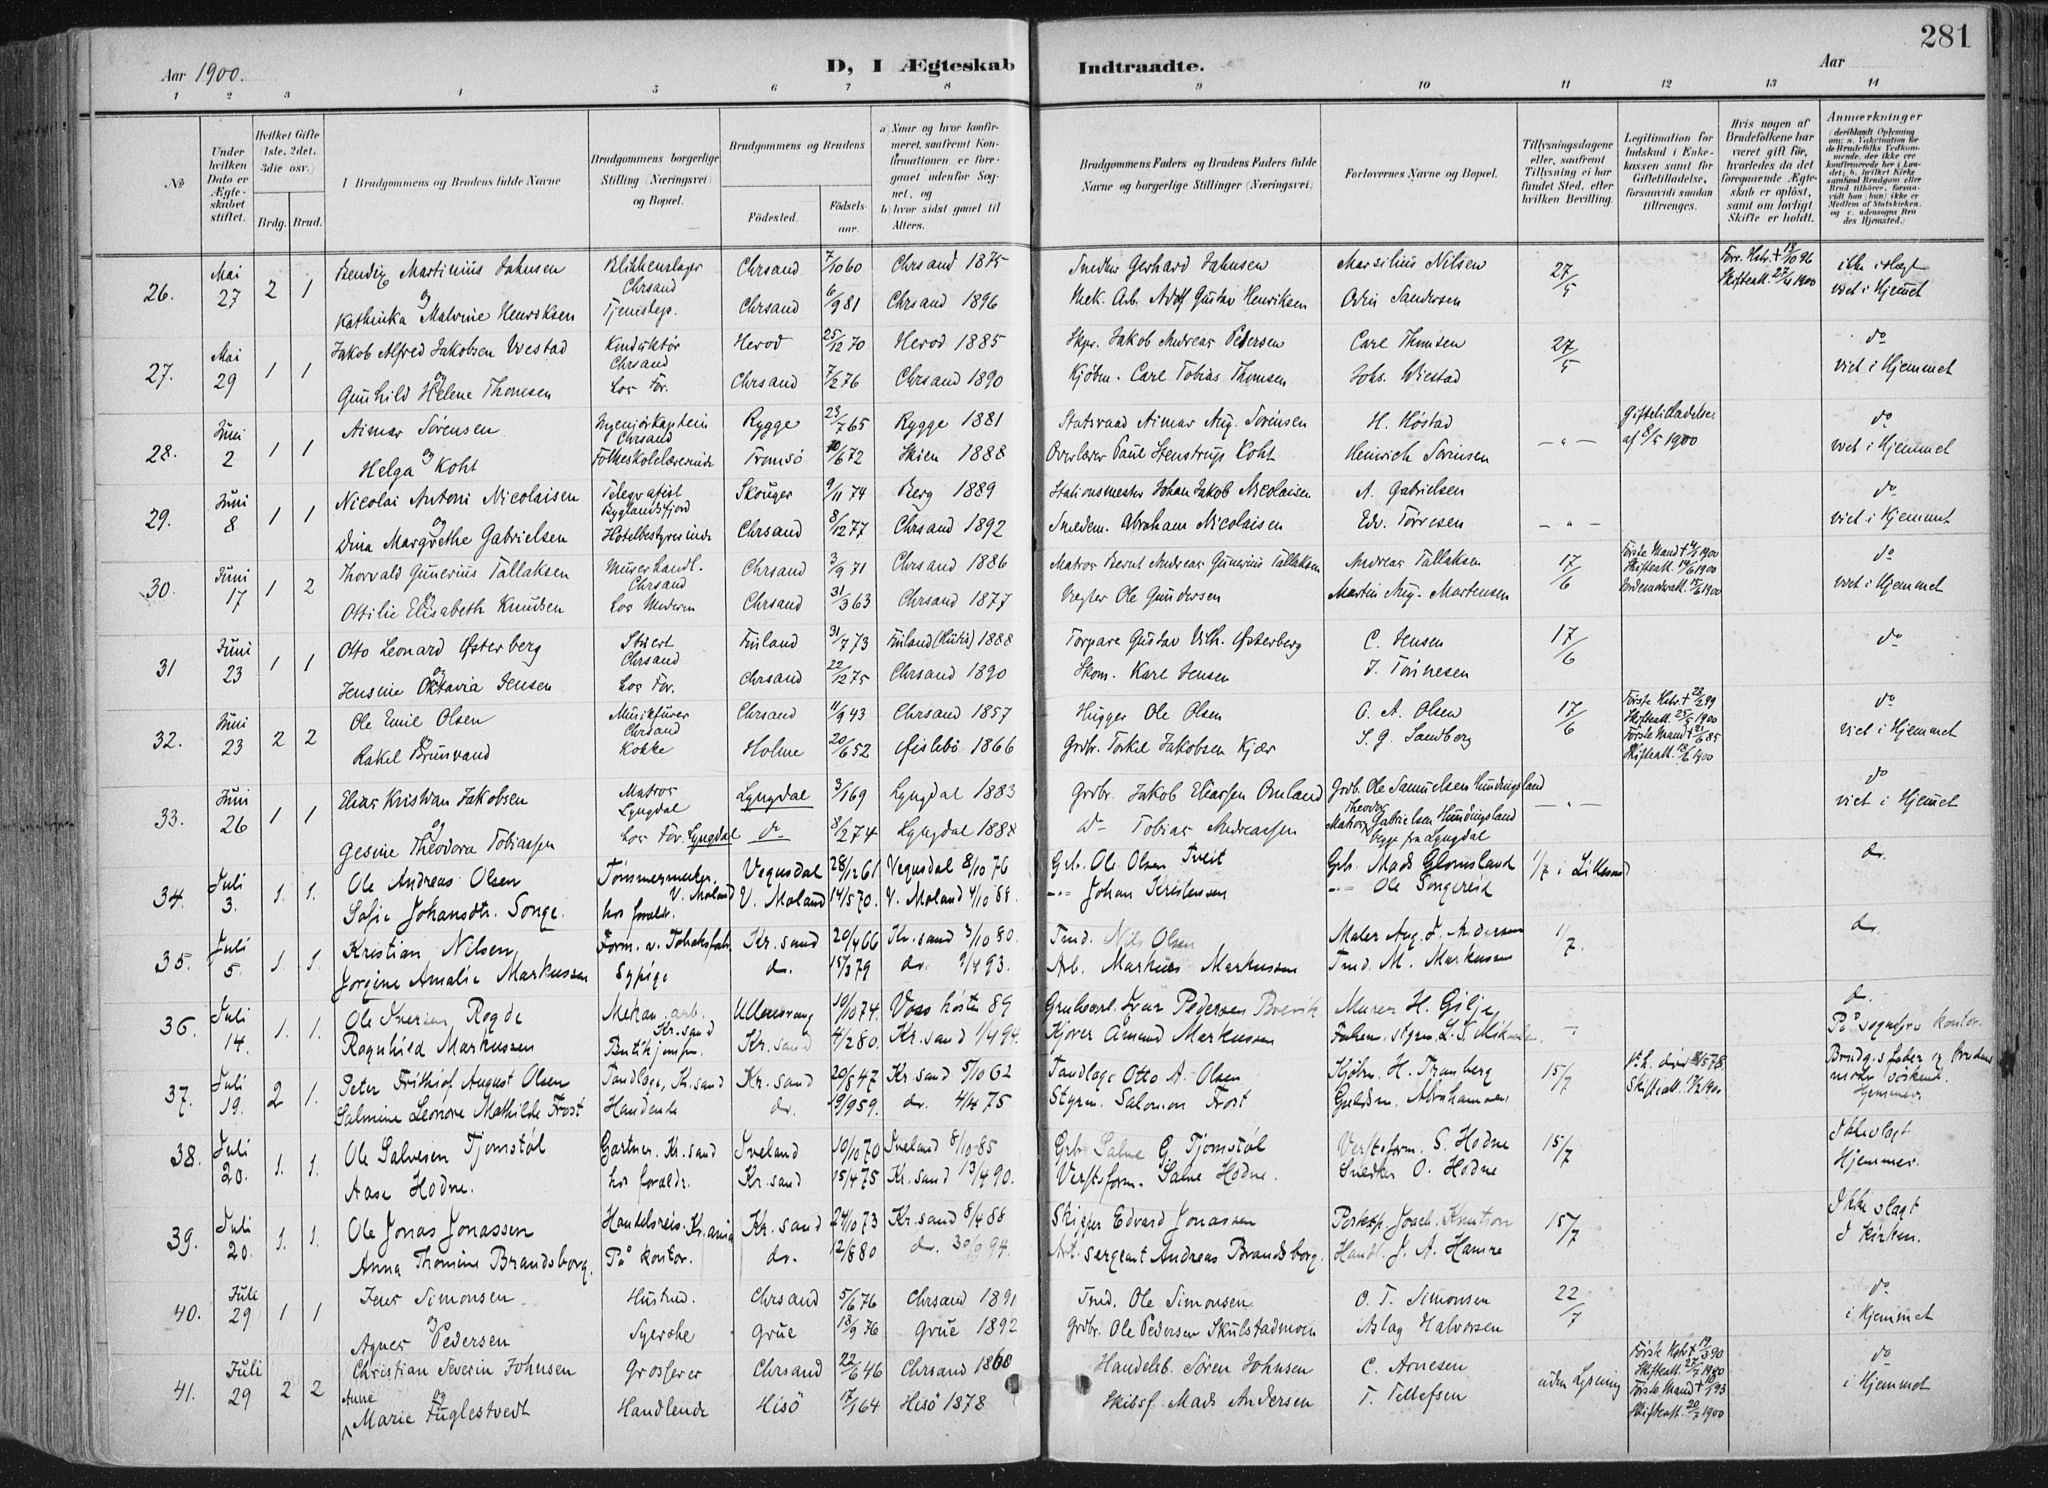 281
Aar 1900.
D, I Ægteskab Indtraadte.
Aar
1 2 3 4 5 6 7 8 9 10 11 12 13 14
No
Under hvilken Dato er Ægteskabet stiftet.
Hvilket Gifte (1ste, 2det, 3die osv.)
Brdg. Brud.
I Brudgommens og Brudens fulde Navne
Brudgommens borgerlige Stilling (Næringsvei) og Bopæl.
Brudgommens og Brudens
Födested. Födselsaar.
a) Naar og hvor konfirmeret, saafremt Konfirmationen er foregaaet udenfor Sognet, og b) hvor sidst gaaet til Alters.
Brudgommens Faders og Brudens Faders fulde Navne og borgerlige Stillinger (Næringsvei)
Forlovernes Navne og Bopæl.
Tillysningsdagene eller, saafremt Tillysning ei har fundet Sted, efter hvilken Bevilling.
Legitimation for Indskud i Enkekassen samt for Giftetilladelse, forsaavidt saadan tiltrænges.
Hvis nogen af Brudefolkene har været gift før, hvorledes da det foregaaende Ægteskab er oplöst, samt om lovligt Skifte er holdt.
Anmærkninger (deriblandt Oplysning om: a. Vakcination for de Brudefolks Vedkommende, der ikke ere konfirmerede her i Landet; b. hvilket Kirkesamfund Brudgom eller Brud tilhörer, forsaavidt han (hun) ikke er Medlem af Statskirken, og c. udensogns Brudes Hjemsted.
26. Mai 27 2 1 Bendix Martinius Jahnsen Blikkenslager Chrsand Chrsand 7/10 60 Chrsand 1875 Smedm Gerhard Jahnsen Marsilius Nilsen 27/5 Skifteatt. 27/4 1900 ikke i slægt
og Kathinka Malvine Henriksen Tjenestep. Chrsand 6/9 81 Chrsand 1896 Mek. Arb. Adolf Gustav Henriksen Odin Sandersen viet i Hjemmet
27. Mai 29 1 1 Jakob Alfred Jakobsen Wiestad Konduktør Chrsand Herod 25/12 70 Herod 1885 Skpr. Jakob Andreas Pedersen Carl Thomsen 27/5 do
og Gunhild Helene Thomsen hos For. Chrsand 7/2 76 Chrsand 1890 Kjøbm. Carl Tobias Thomsen Johs. Wiestad viet i Hjemmet
28. Juni 2 1 1 Aimar Sörensen Ingeniørkaptein Chrsand Rygge 23/7 65 Rygge 1881 Statsraad Aimar Aug. Sörensen H. Höstad — " — Giftetilladelse af 8/5 1900 do
og Helga Koht Folkeskolelærerinde Tromsö 10/6 72 Skien 1888 Overlærer Paul Stenstrup Koht Heinrich Sörensen viet i Hjemmet
29. Juni 8 1 1 Nicolai Antoni Nicolaisen Telegrafist Byglandsfjord Skouger 9/11 74 Berg 1889 Stationsmester Johan Jakob Nicolaisen A. Gabrielsen — " — do
og Dina Margrethe Gabrielsen Hotelbestyrerinde Chrsand 8/12 77 Chrsand 1892 Smedem. Abraham Nicolaisen Edv. Törresen viet i Hjemmet
30. Juni 17 1 2 Thorvald Gunerius Tallaksen Murerhandl. Chrsand Chrsand 3/9 71 Chrsand 1886 Matros Bernt Andreas Gunerius Tallaksen Andreas Tallaksen 17/6 Første Mand + 4/1 1900 Skifteatt. 14/6 1900 do
og Ottilie Elisabeth Knudsen hos Moderen Chrsand 31/3 63 Chrsand 1877 Vægter Ole Gundersen Martin Aug. Martensen viet i Hjemmet
31 Juni 23 1 1 Otto Leonard Østerberg Stuert Chrsand Finland 31/7 73 Finland 1888 Torpare Gustav Vilh. Østerberg C. Jensen 17/6 do
og Jensine Oktavia Jensen hos For. Chrsand 22/12 75 Chrsand 1890 Skom. Karl Jensen J. Törnesen
32. Juni 23 2 2 Ole Emil Olsen Musikfører Chrsand Chrsand 11/9 43 Chrsand 1857 Hugger Ole Olsen O. A. Olsen 17/6 Første Hstr. + 23/2 99 Skifteatt. 25/5 1900 do
og Rakel Brunvand Kokke Holme 20/6 52 Øislebö 1866 Grdbr. Torkel Jakobsen Kjær S. G. Sandberg Første Mand + 21/6 85 Skifteatt. 13/6 1900 viet i Hjemmet
33. Juni 26 1 1 Elias Kristian Jakobsen Matros Lyngdal Lyngdal 3/1 69 Lyngdal 1883 Grdbr. Jakob Eliassen Omland Grdb. Ole Samuelsen Hundingsland — " — do
og Gesine Theodora Tobiassen hos For. Lyngdal do 8/2 74 Lyngdal 1888 do Tobias Andreassen Matros Theodor Gabrielsen Hundingsland begge fra Lyngdal viet i Hjemmet
34. Juli 3. 1. 1. Ole Andreas Olsen Tømmermester. V. Moland Vegusdal 28/12 61 Vegusdal 8/10 76 Grb. Ole Olsen Tveit Grb. Mads Glomsland 1/7 i Lillesand do.
Sofie Johansdtr. Songe. hos foraldr. V. Moland 14/5 70. V. Moland 4/10 88. Johan Kristensen Ole Songereid
35. Juli 5. 1. 1. Kristian Nilsen Form. v. Tobaksfabr. Kr.sand 20/4 66 Kr.sand 3/10 80. Tmd. Nils Olsen Maler Aug. J. Andersen 1/7. do.
Jorgine Amalie Markussen Sypige do. 15/3 79 do. 9/4 93. Arb. Markus Markussen Tmd. M. Markussen
36. Juli 14. 1. 1. Ole Iversen Rogde Mekan. arb. Kr.sand Ullensvang 19/10 74. Voss høsten 89 Grubearb. Ivar Pedersen Brevik Murer H. Gilje do.
Ragnhild Markussen Butikjomfru. Kr.sand 4/2 80. Kr.sand 1/4 94. Kjører Amund Markussen På sognepr. kontor.
37. Juli 19. 2 1. Peter Frithiof August Olsen Tandlæge, Kr.sand Kr.sand 20/8 47 Kr.sand 5/10 62 Tandlæge Otto A. Olsen Kjøbm. H. Tramberg 15/7 Skifteatt.
Salmine Leonore Mathilde Frost Handlende do. 19/9 59. do. 4/4 75 Styrm. Salomon Frost Guldsm. Abrahamsen Hjemmet
38. Juli 20. 1. 1. Ole Salvesen Tjomstöl Gartner. Kr.sand Iveland 19/10 70 Iveland 8/10 85 Grb Salve G Tjomstöl Verftsform. S. Hodne 15/7 Ikke slagt.
Aase Hodne. hos foraldr. Kr.sand 15/4 75 Kr.sand 13/4 90. Verftsform. Salve Hodne. Snedker O. Hodne Hjemmet.
39. Juli 20. 1. 1. Ole Jonas Jonassen Handelsreis. Kr.ania Kr.sand 24/10 73 Kr.sand 8/4 88 Skipper Edvard Jonassen Postexp. Joach. Knutson 15/7 Ikke slagt
Anna Thomine Brandsborg. På kontor. do. 12/8 80 do. 30/9 94. Art. sergeant Andreas Brandsborg. Handl. J. A. Hamre I Kirken.
40. Juli 29 1 1 Jens Simonsen Hustmd. Chrsand 5/6 76 Chrsand 1891 Tmd. Ole Simonsen O. T. Simonsen 22/7 do
og Agnes Pedersen Syerske Grue 18/9 76 Grue 1892 Grdbr. Ole Pedersen Skulstadmoen Aslag Halvorsen i Hjemmet
41. Juli 29 2 2 Christian Severin Johnsen Grosserer Chrsand 22/6 46 Chrsand 1860 Handelsb. Sören Johnsen C. Arnesen uden Lysning Første Kone + 19/3 90 Skifteatt. 27/7 1900 do
og Anne Marie Fuglestvedt Handlende Hisö 17/1 64 Hisö 1878 Skibsf. Mads Andersen T. Tellefsen Første Mand + Skifteatt. 20/7 1900 i Hjemmet